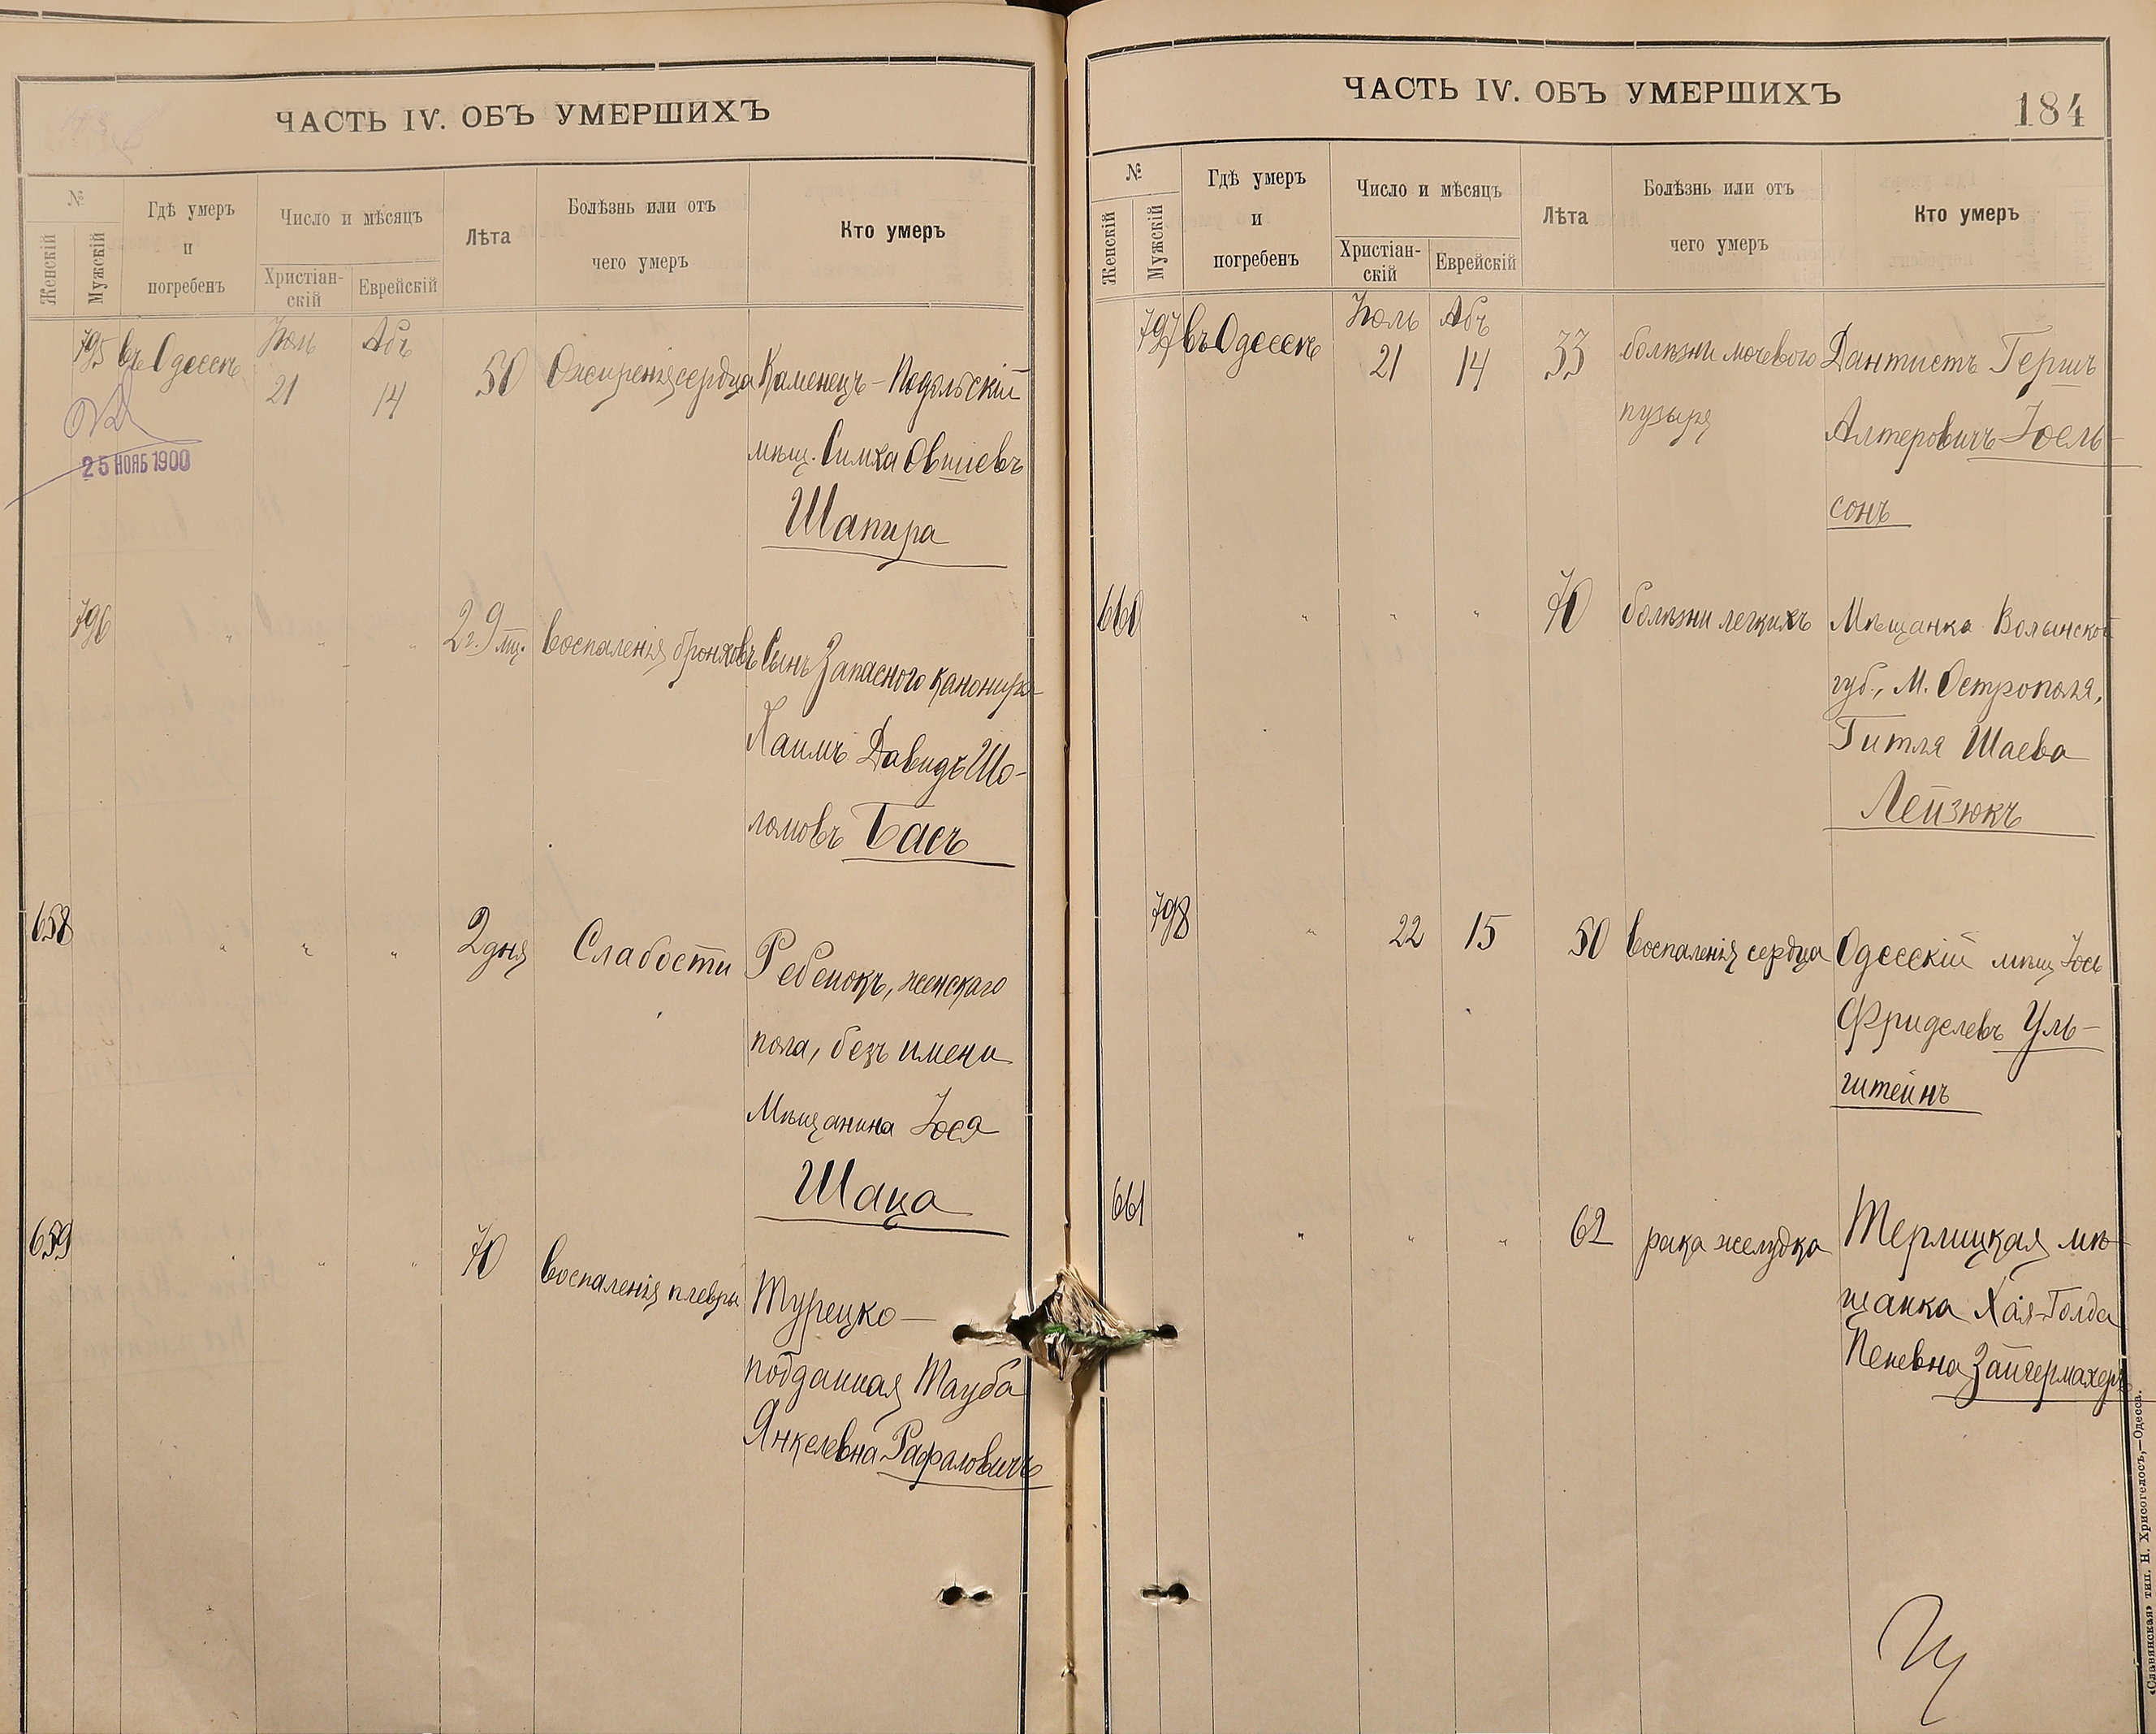 ЧАСТЬ IV. ОБЪ УМЕРШИХЪ
№
Женскій
Мужскій
Гдѣ умеръ
и
погребенъ
Число и мѣсяцъ
Христіан-
скій
Еврейскій
Лѣта
Болѣзнь или отъ
чего умеръ
Кто умеръ
795 въ Одессѣ Іюль 21 Абъ 14 50 Ожиренія сердца Каменецъ-Подольскій
мѣщ. Симха Овшіевъ
Шапира
25 НОЯБ 1900
796 " " " 2 г. 9 мц. воспаленія бронховъ Сынъ Запаснаго канонира
Хаимъ Давидъ Шо-
ломовъ Басъ
658 " " " 2 дня Слабости Ребенокъ, женскаго
пола, безъ имени
Мѣщанина Іося
Шаца
659 " " " 70 воспаленія плевры Турецко-
подданная Тауба
Янкелевна Рафаловичъ
ЧАСТЬ IV. ОБЪ УМЕРШИХЪ
184
№
Женскій
Мужскій
Гдѣ умеръ
и
погребенъ
Число и мѣсяцъ
Христіан-
скій
Еврейскій
Лѣта
Болѣзнь или отъ
чего умеръ
Кто умеръ
797 въ Одессѣ Іюль 21 Абъ 14 33 болѣзни мочевого Дантистъ Гершъ
пузыря Алтеровичъ Іоель-
сонъ
660 " " " 70 болѣзни легкихъ Мѣщанка Волынской
губ., М. Острополя,
Гитля Шаева
Лейзюкъ
798 " 22 15 50 воспаленія сердца Одесскій мѣщ Іось
Фриделевъ Уль-
штейнъ
661 " " " 62 рака желудка мѣ-
щанка Хая-Голда
Зайгермахеръ
«Славянская» тип. Н. Хрисогелосъ,—Одесса.